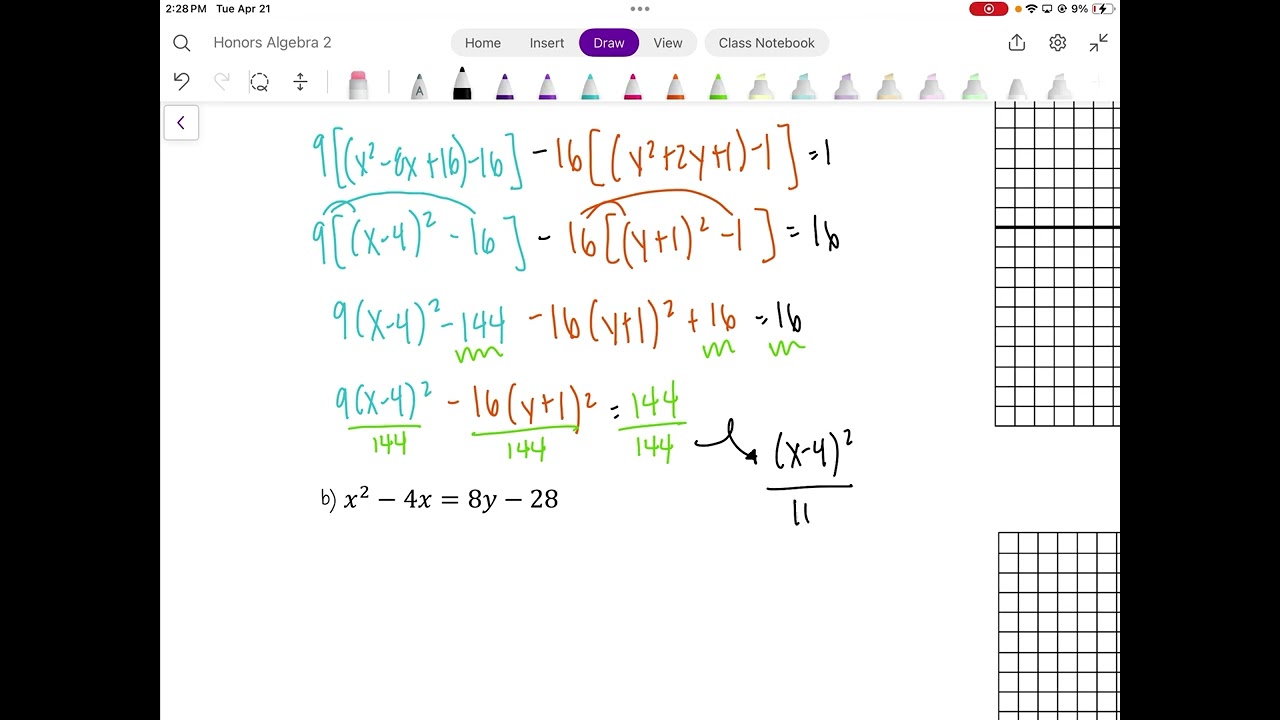 2:28 PM Tue Apr 21 9%
Honors Algebra 2 Home Insert Draw View Class Notebook
A
9[(x² - 8x + 16) - 16] - 16[(y² + 2y + 1) - 1] = 1
9[(x-4)² - 16] - 16[(y+1)² - 1] = 16
9(x-4)² - 144 - 16(y+1)² + 16 = 16
9(x-4)²/144 - 16(y+1)²/144 = 144/144
(x-4)²/11
b) x² − 4x = 8y − 28